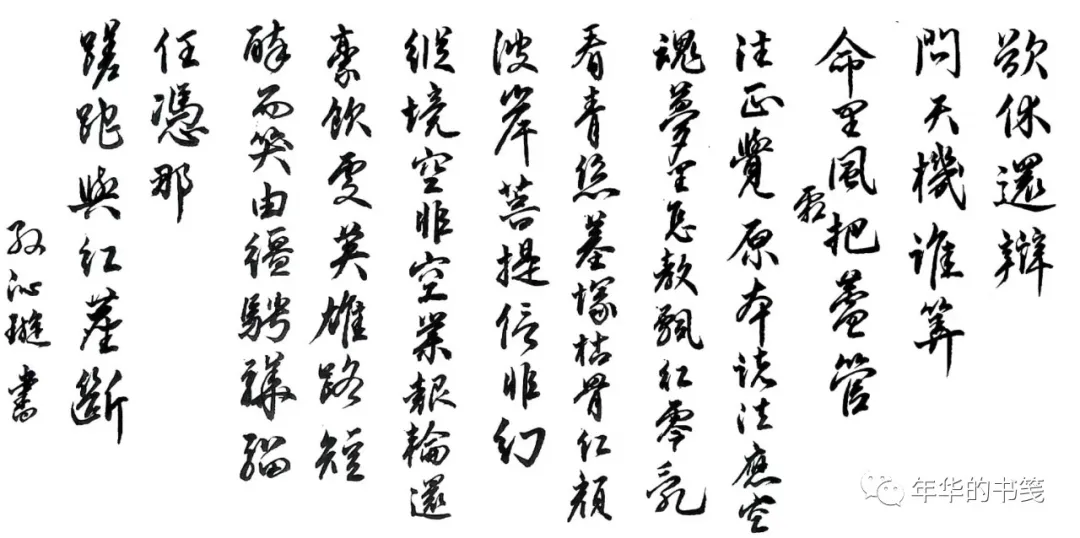 欲休還辯
問天機誰筭
命里風霜把蓋管
法正覺原本說法應空
魂夢里怎教飄紅零乱
看青絲墓塚枯骨紅顏
彼岸菩提信非幻
縱境空非空業報輪還
豪飲處英雄路短
醉而笑由韁騁驊騮
任憑那
蹉跎與紅塵斷
孙沁璇書
年华的书笺